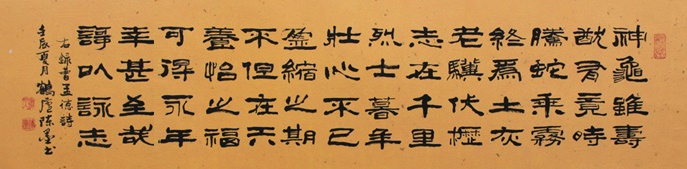 神龜雖壽
猷有竟時
騰蛇乘霧
終為土灰
老驥伏櫪
志在千里
烈士暮年
壯心不已
盈縮之期
不但在天
養怡之福
可得永年
幸甚至哉
謌以詠志
右録曹孟德詩
壬辰夏月鶴廬陳書